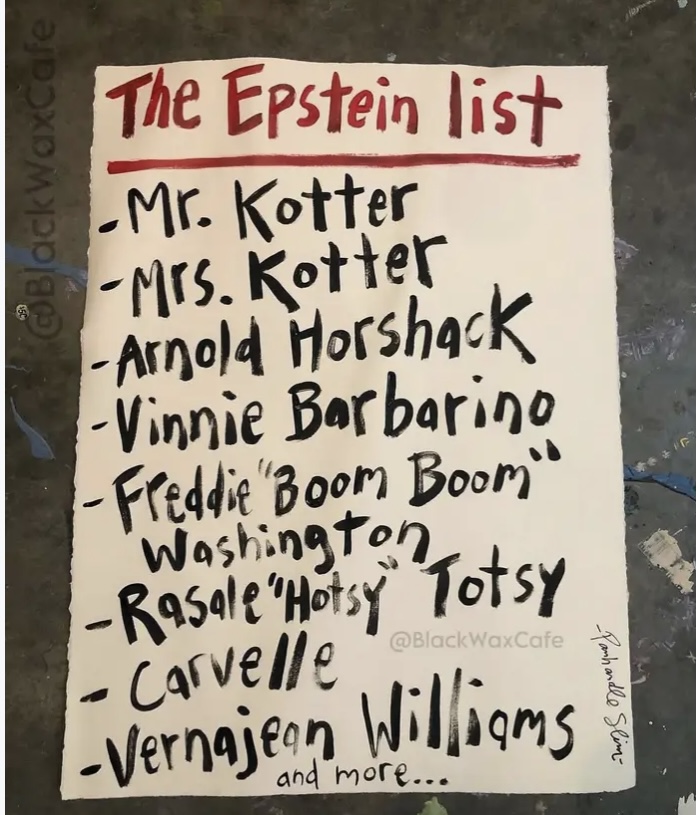 The Epstein list
- Mr. Kotter
- Mrs. Kotter
- Arnold Horshack
- Vinnie Barbarino
- Freddie "Boom Boom"
Washington
- Rasale "Hotsy" Totsy
- Carvelle
- Vernajean Williams
and more...
-Panhandle Slim-
@BlackWaxCafe
@BlackWaxCafe